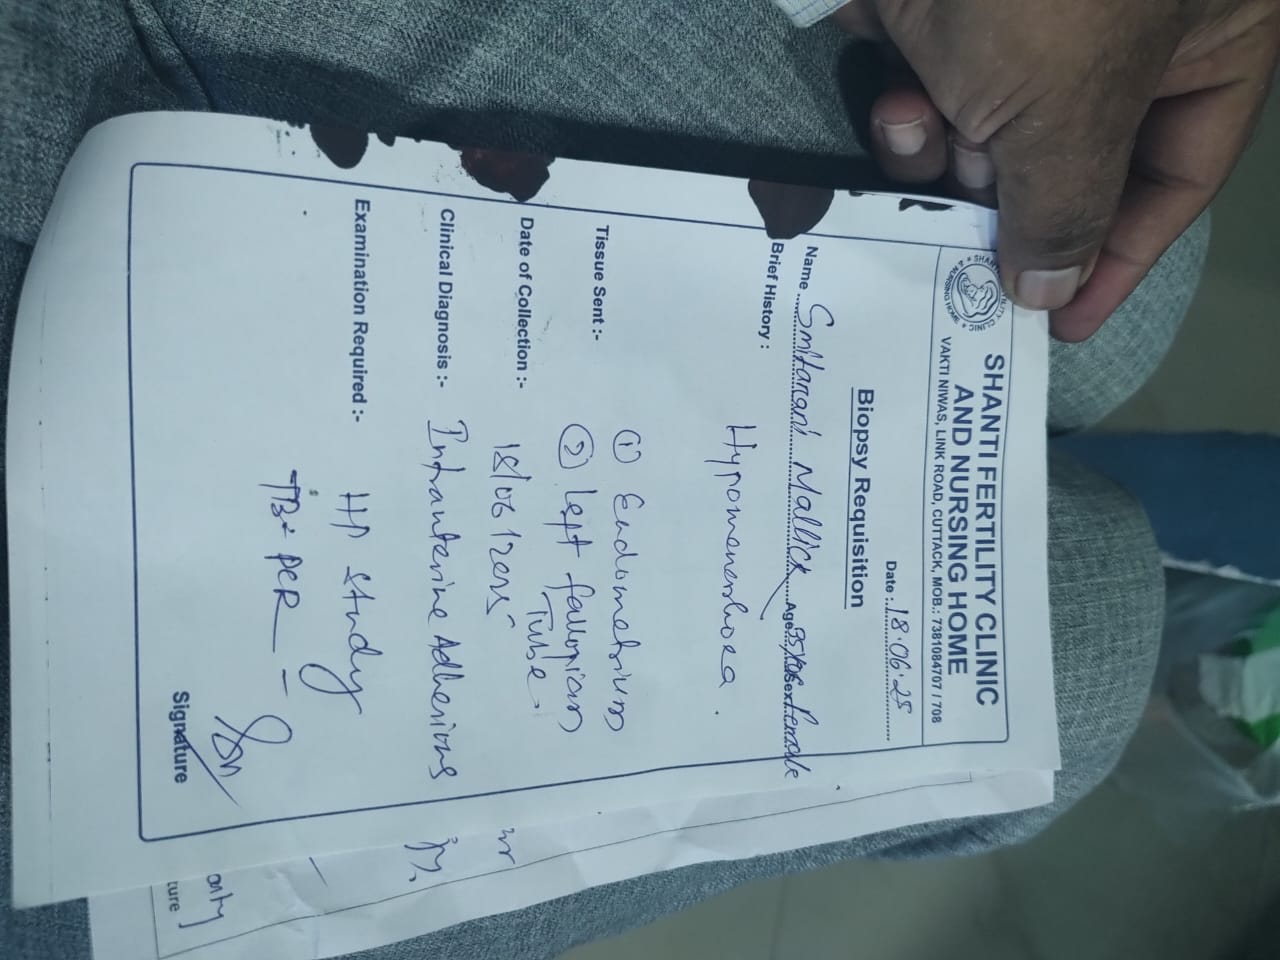 SHANTI FERTILITY CLINIC
AND NURSING HOME
VAKTI NIWAS, LINK ROAD, CUTTACK, MOB.: 7381084707 / 708
Date : 18.06.25
Biopsy Requisition
Name Smitarani Mallick Age 35yrs Sex Female
Brief History :
Hypomenorrhoea.
Tissue Sent :- ① Endometrium
② Left fallopian
Tube.
Date of Collection :- 18/06/2025
Clinical Diagnosis :- Intrauterine Adhesions
Examination Required :- HP study
TB PCR
Signature
only
ture